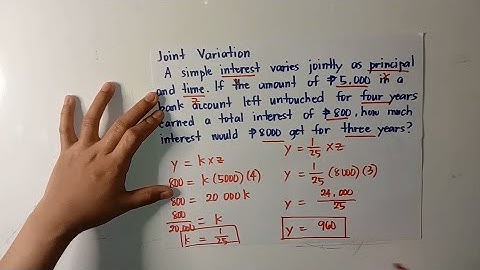 Joint Variation
A simple interest varies jointly as principal
and time. If the amount of ₱5,000 in a
x
z
bank account left untouched for four years
earned a total interest of ₱800, how much
interest would ₱8000 get for three years?
y = kxz
800 = k(5000)(4)
800 = 20 000k
800/20,000 = k
k = 1/25
y = 1/25 xz
y = 1/25 (8000)(3)
y = 24,000/25
y = 960